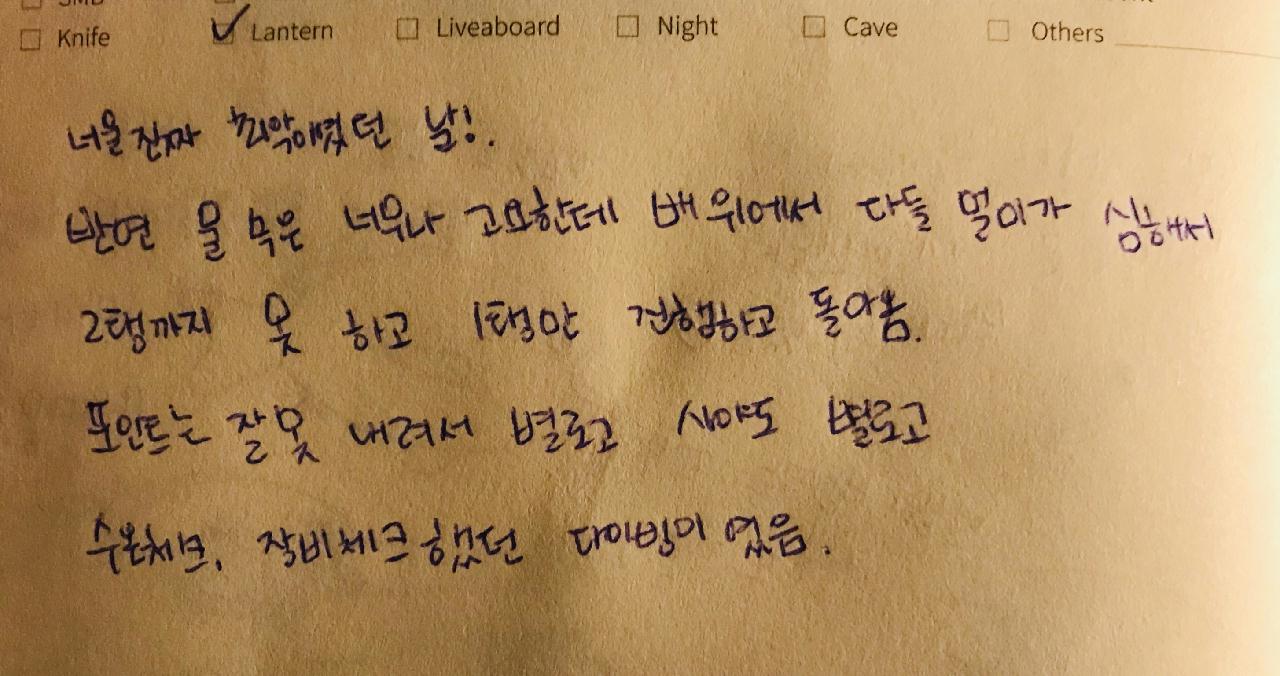 SMB
Knife Lantern Liveaboard Night Cave Others
너울 진짜 최악이였던 날!.
반면 물 속은 너무나 고요한데 배 위에서 다들 멀미가 심해서
2탱까지 못 하고 1탱만 진행하고 돌아옴.
포인트는 잘못 내려서 별로고 시야도 별로고
수온체크, 장비체크 했던 다이빙이 였음.